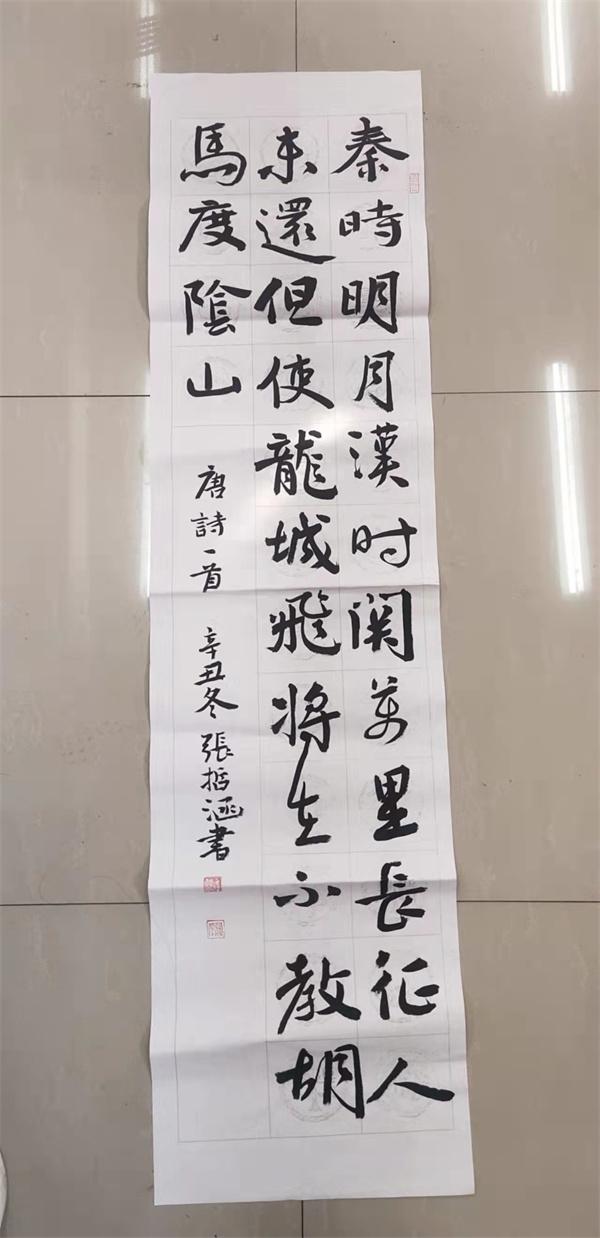 秦時明月漢时関萬里長征人
未還但使龍城飛将在不教胡
馬度陰山
唐詩一首 辛丑冬 張哲涵書